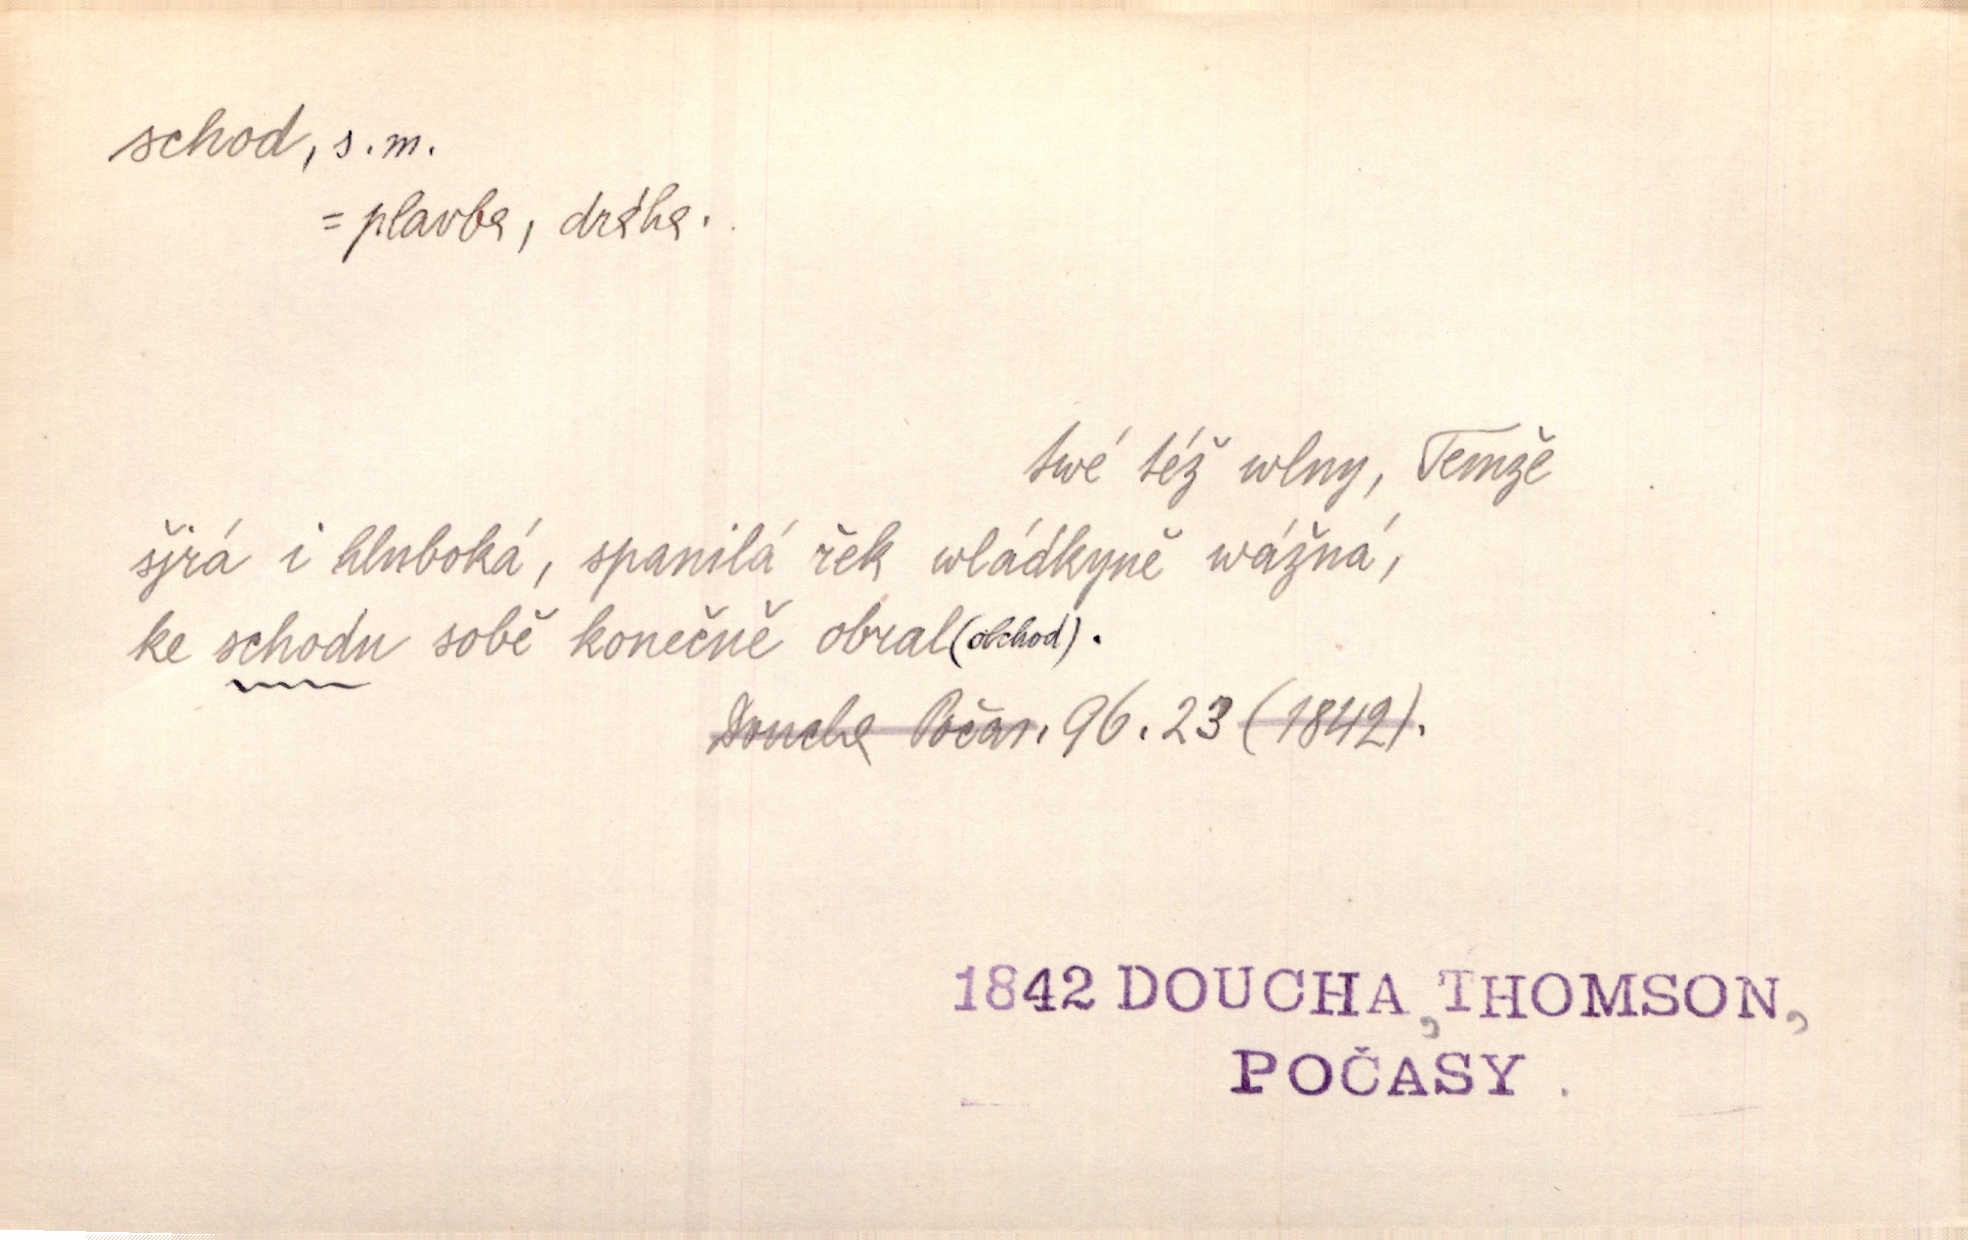 schod, s.m.
= plavba, dráha.
twé též wlny, Temže
šjrá i hluboká, spanilá řek wládkyně wážná,
ke schodu sobě konečně obral (obchod).
Doucha Počas. 96. 23 (1842).
1842 DOUCHA, THOMSON,
POČASY.